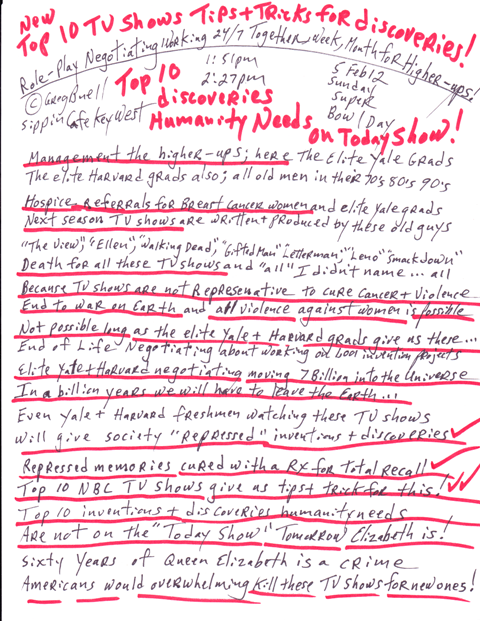 New
Top 10 TV Shows Tips + Tricks for discoveries!
Role-Play Negotiating Working 24/7 Together, Week, Month for Higher-ups!
© Greg Buell
sippin Cafe Key West
1:51pm
2:27pm
5 Feb 12
Sunday
Super
Bowl Day
Top 10
discoveries
Humanity Needs
on Today Show!
Management the higher-ups; here The Elite Yale Grads
The elite Harvard grads also; all old men in their 70's 80's 90's
Hospice-referrals for Breast Cancer women and elite Yale grads
Next season TV shows are written + produced by these old guys
"The View", "Ellen", "Walking Dead" "Gifted Man" "Letterman", "Leno" "Smackdown"
Death for all these TV shows and "all" I didn't name... all
Because TV shows are not Represenative to cure cancer + Violence
End to war on Earth and all violence against women is possible
Not possible long as the elite Yale + Harvard grads give us these...
End of Life Negotiating about working on 1,001 invention projects
Elite Yale + Harvard negotiating moving 7 Billion into the Universe
In a billion years we will have to leave the Earth...
Even Yale + Harvard freshmen watching these TV shows
will give society "Repressed" inventions + discoveries
Repressed memories cured with a Rx for Total Recall
Top 10 NBC TV Shows give us tips + trick for this!
Top 10 inventions + discoveries humanity needs
Are not on the "Today Show" Tomorrow Elizabeth is!
Sixty Years of Queen Elizabeth is a crime
Americans would overwhelming kill these TV shows for new ones!